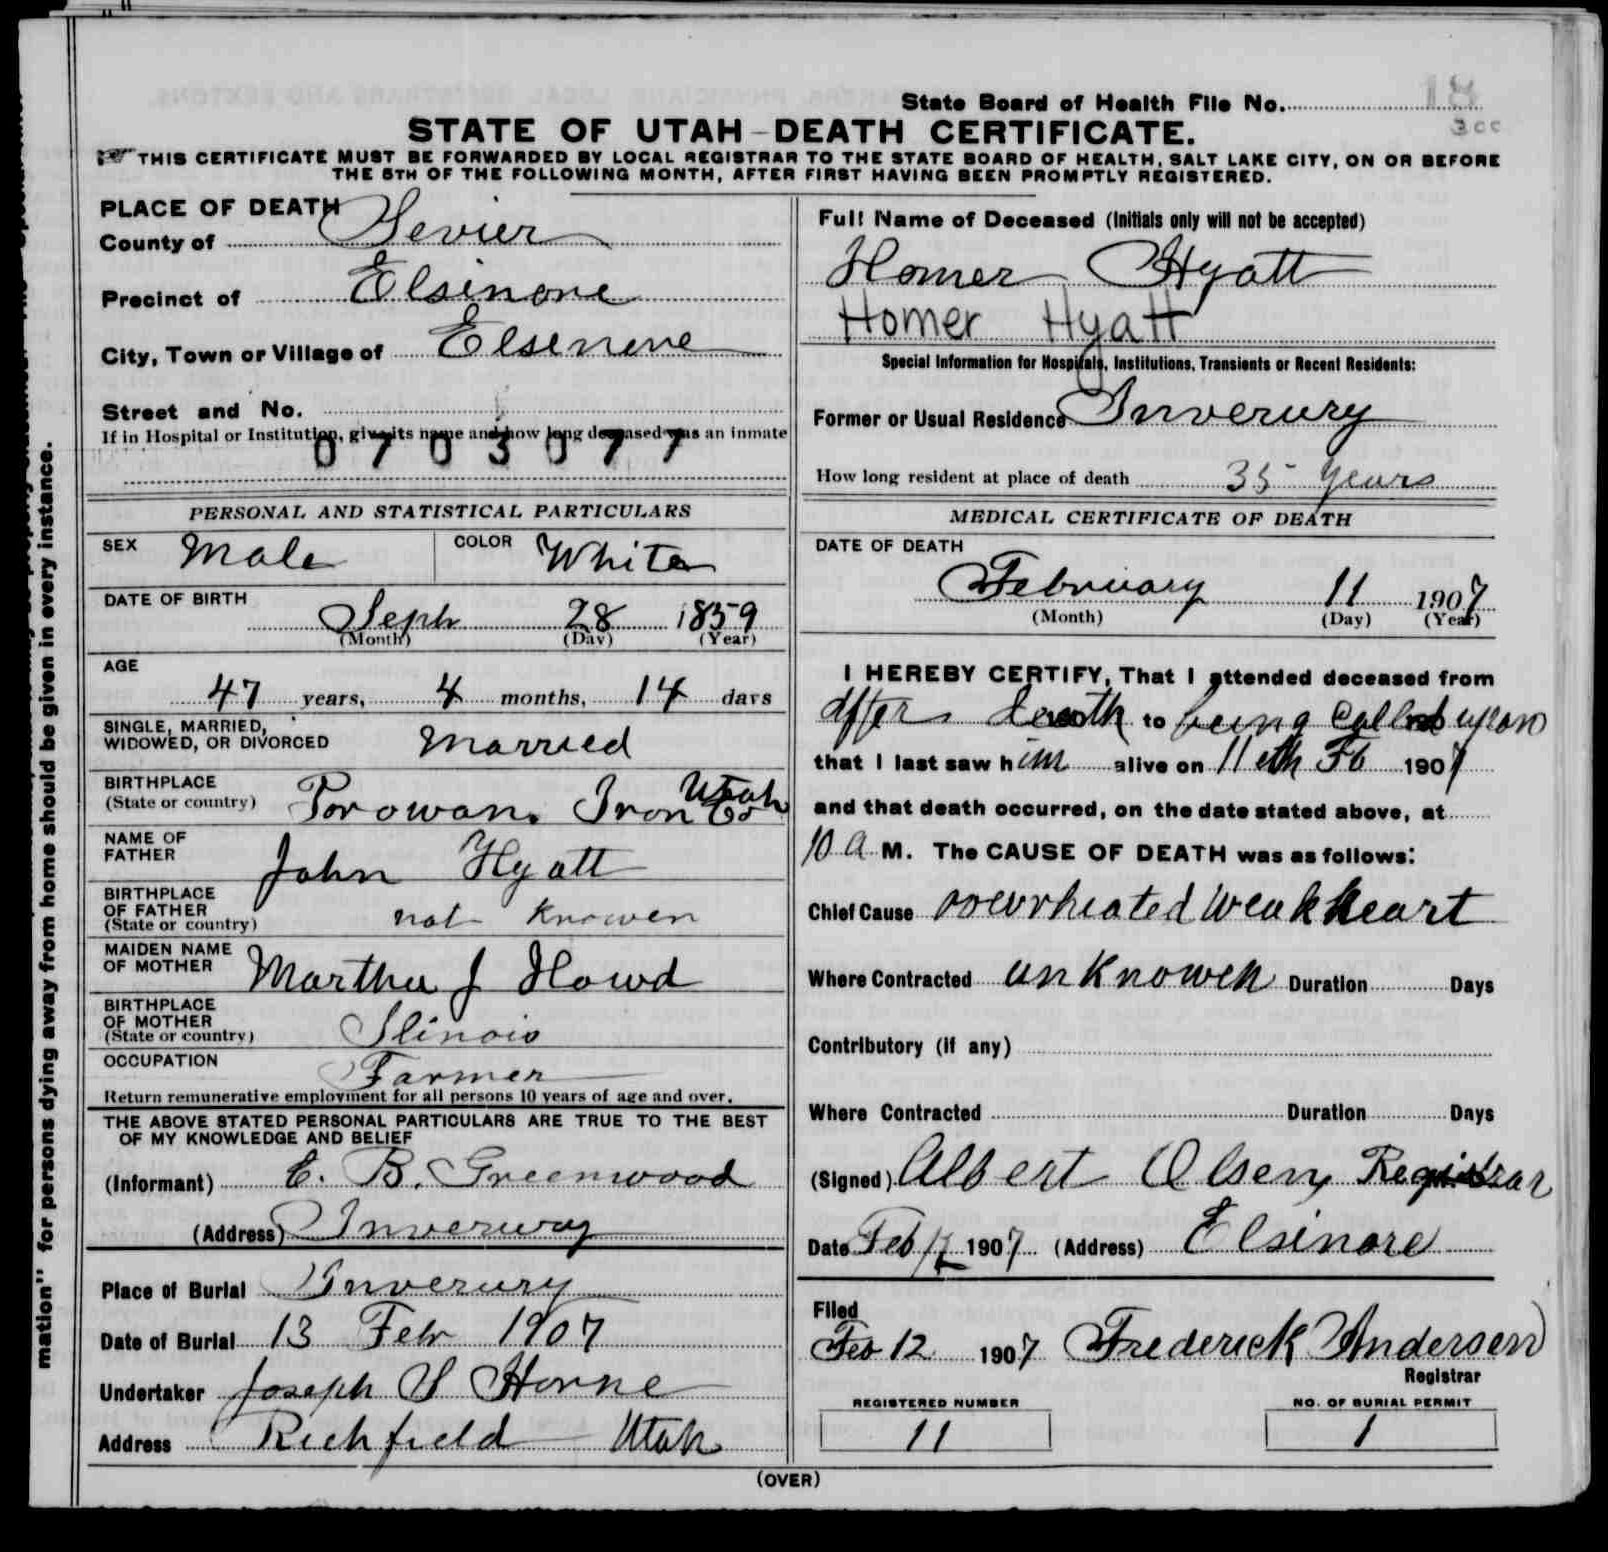 18
3 cc
State Board of Health File No.
STATE OF UTAH-DEATH CERTIFICATE.
THIS CERTIFICATE MUST BE FORWARDED BY LOCAL REGISTRAR TO THE STATE BOARD OF HEALTH, SALT LAKE CITY, ON OR BEFORE
THE 5TH OF THE FOLLOWING MONTH, AFTER FIRST HAVING BEEN PROMPTLY REGISTERED.
PLACE OF DEATH
County of Sevier
Precinct of Elsinore
City, Town or Village of Elsenene
Street and No.
If in Hospital or Institution, give its name and how long deceased was an inmate
0703077
PERSONAL AND STATISTICAL PARTICULARS
SEX Male COLOR White
DATE OF BIRTH
Seph 28 1859
(Month) (Day) (Year)
AGE
47 years, 4 months, 14 days
SINGLE, MARRIED,
WIDOWED, OR DIVORCED Married
BIRTHPLACE
(State or country) Porowan. Iron Co Utah
NAME OF
FATHER John Hyatt
BIRTHPLACE
OF FATHER
(State or country) not Knowen
MAIDEN NAME
OF MOTHER Martha J Howd
BIRTHPLACE
OF MOTHER
(State or country) Ilinois
OCCUPATION Farmer
Return remunerative employment for all persons 10 years of age and over.
THE ABOVE STATED PERSONAL PARTICULARS ARE TRUE TO THE BEST
OF MY KNOWLEDGE AND BELIEF
(Informant) E. B. Greenwood
(Address) Inverury
Place of Burial Inverury
Date of Burial 13 Febr 1907
Undertaker Joseph S Horne
Address Richfield Utah
Full Name of Deceased (Initials only will not be accepted)
Homer Hyatt
Homer Hyatt
Special Information for Hospitals, Institutions, Transients or Recent Residents:
Former or Usual Residence Inverury
How long resident at place of death 35 years
MEDICAL CERTIFICATE OF DEATH
DATE OF DEATH
February 11 1907
(Month) (Day) (Year)
I HEREBY CERTIFY, That I attended deceased from
after death to being Called upon
that I last saw him alive on 11eth Fb 1907
and that death occurred, on the date stated above, at
10 a M. The CAUSE OF DEATH was as follows:
Chief Cause overheated Weak heart
Where Contracted unKnowen Duration Days
Contributory (if any)
Where Contracted Duration Days
(Signed) Albert Olsen, Registrar
Date Feb 12 1907 (Address) Elsinore
Filed
Feb 12 1907 Frederick Andersen
Registrar
REGISTERED NUMBER NO. OF BURIAL PERMIT
11 1
(OVER)
mation" for persons dying away from home should be given in every instance.